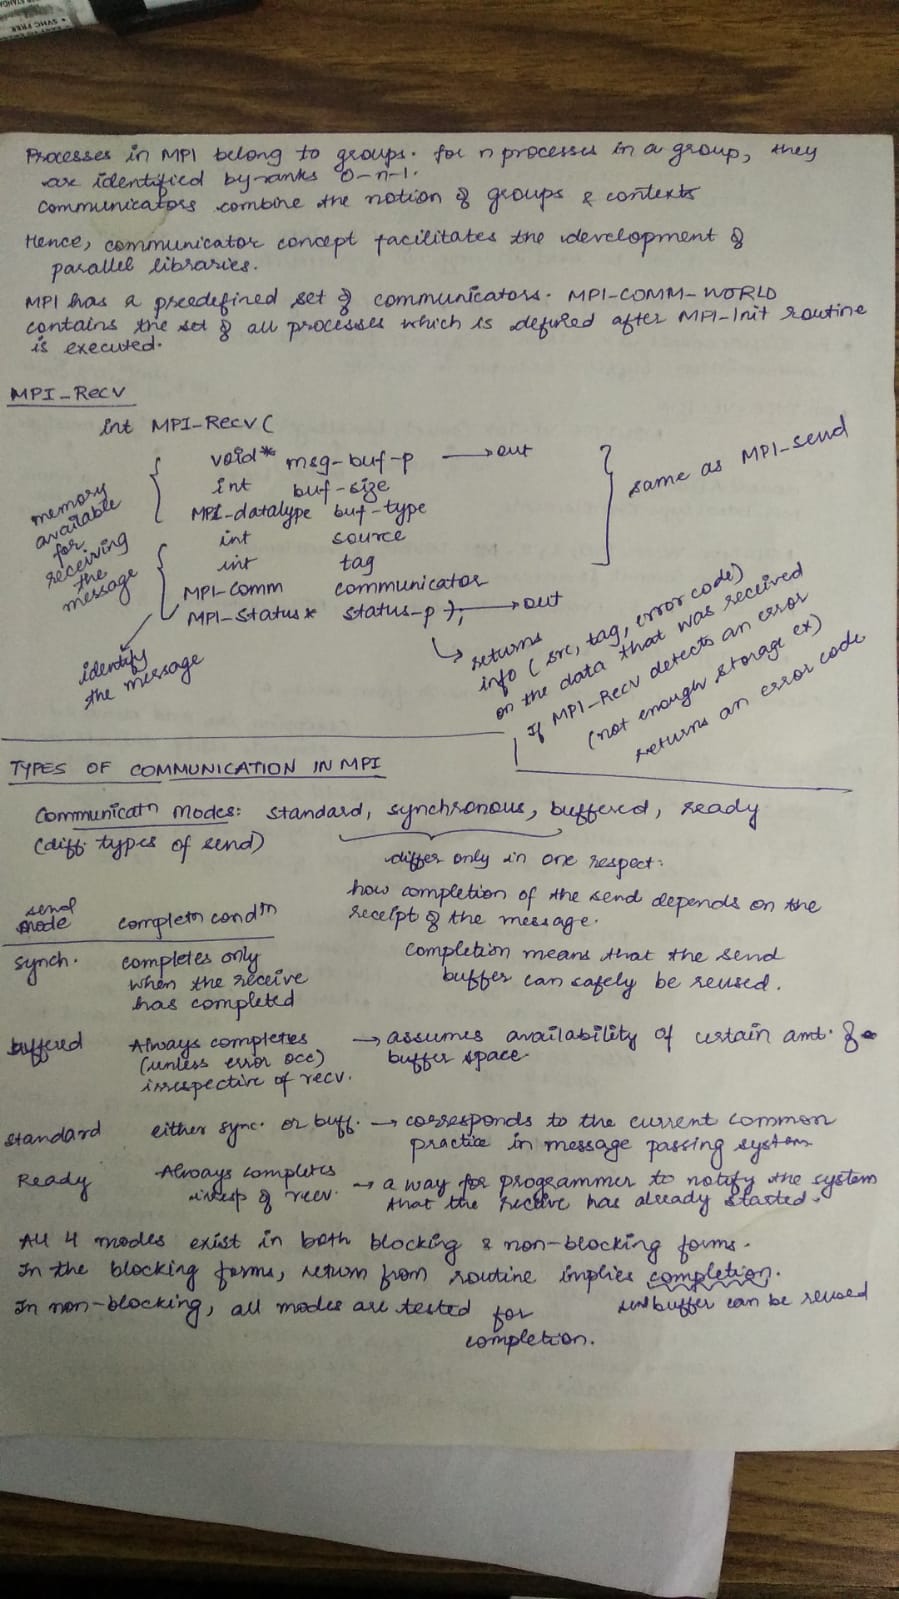 SYNC FREE
Processes in MPI belong to groups. for n processes in a group, they
are identified by ranks 0-n-1.
Communicators combine the notion of groups & contexts
Hence, communicator concept facilitates the development of
parallel libraries.
MPI has a predefined set of communicators. MPI-COMM-WORLD
contains the set of all processes which is defined after MPI-Init routine
is executed.
MPI_Recv
int MPI-Recv(
void* msg-buf-p → out
int buf-size
MPI-datatype buf-type
int source
int tag
MPI-Comm communicator
MPI-Status* status-p ); → out
same as MPI-send
memory
available
for
receiving
the
message
identify
the message
returns
info (src, tag, error code)
on the data that was received
If MPI-Recv detects an error
(not enough storage ex)
returns an error code
TYPES OF COMMUNICATION IN MPI
Communicatn Modes: standard, synchronous, buffered, ready
(diff. types of send)
differ only in one respect:
how completion of the send depends on the
receipt of the message.
completion means that the send
buffer can safely be reused.
send
mode completn condtn
Synch. completes only
when the receive
has completed
buffered Always completes → assumes availability of certain amt. of
(unless error occ) buffer space.
irrespective of recv.
standard either sync. or buff. → corresponds to the current common
practice in message passing system
Ready Always completes → a way for programmer to notify the system
irresp of recv. that the receive has already started.
All 4 modes exist in both blocking & non-blocking forms.
In the blocking forms, return from routine implies completion.
buffer can be reused
In non-blocking, all modes are tested for
completion.